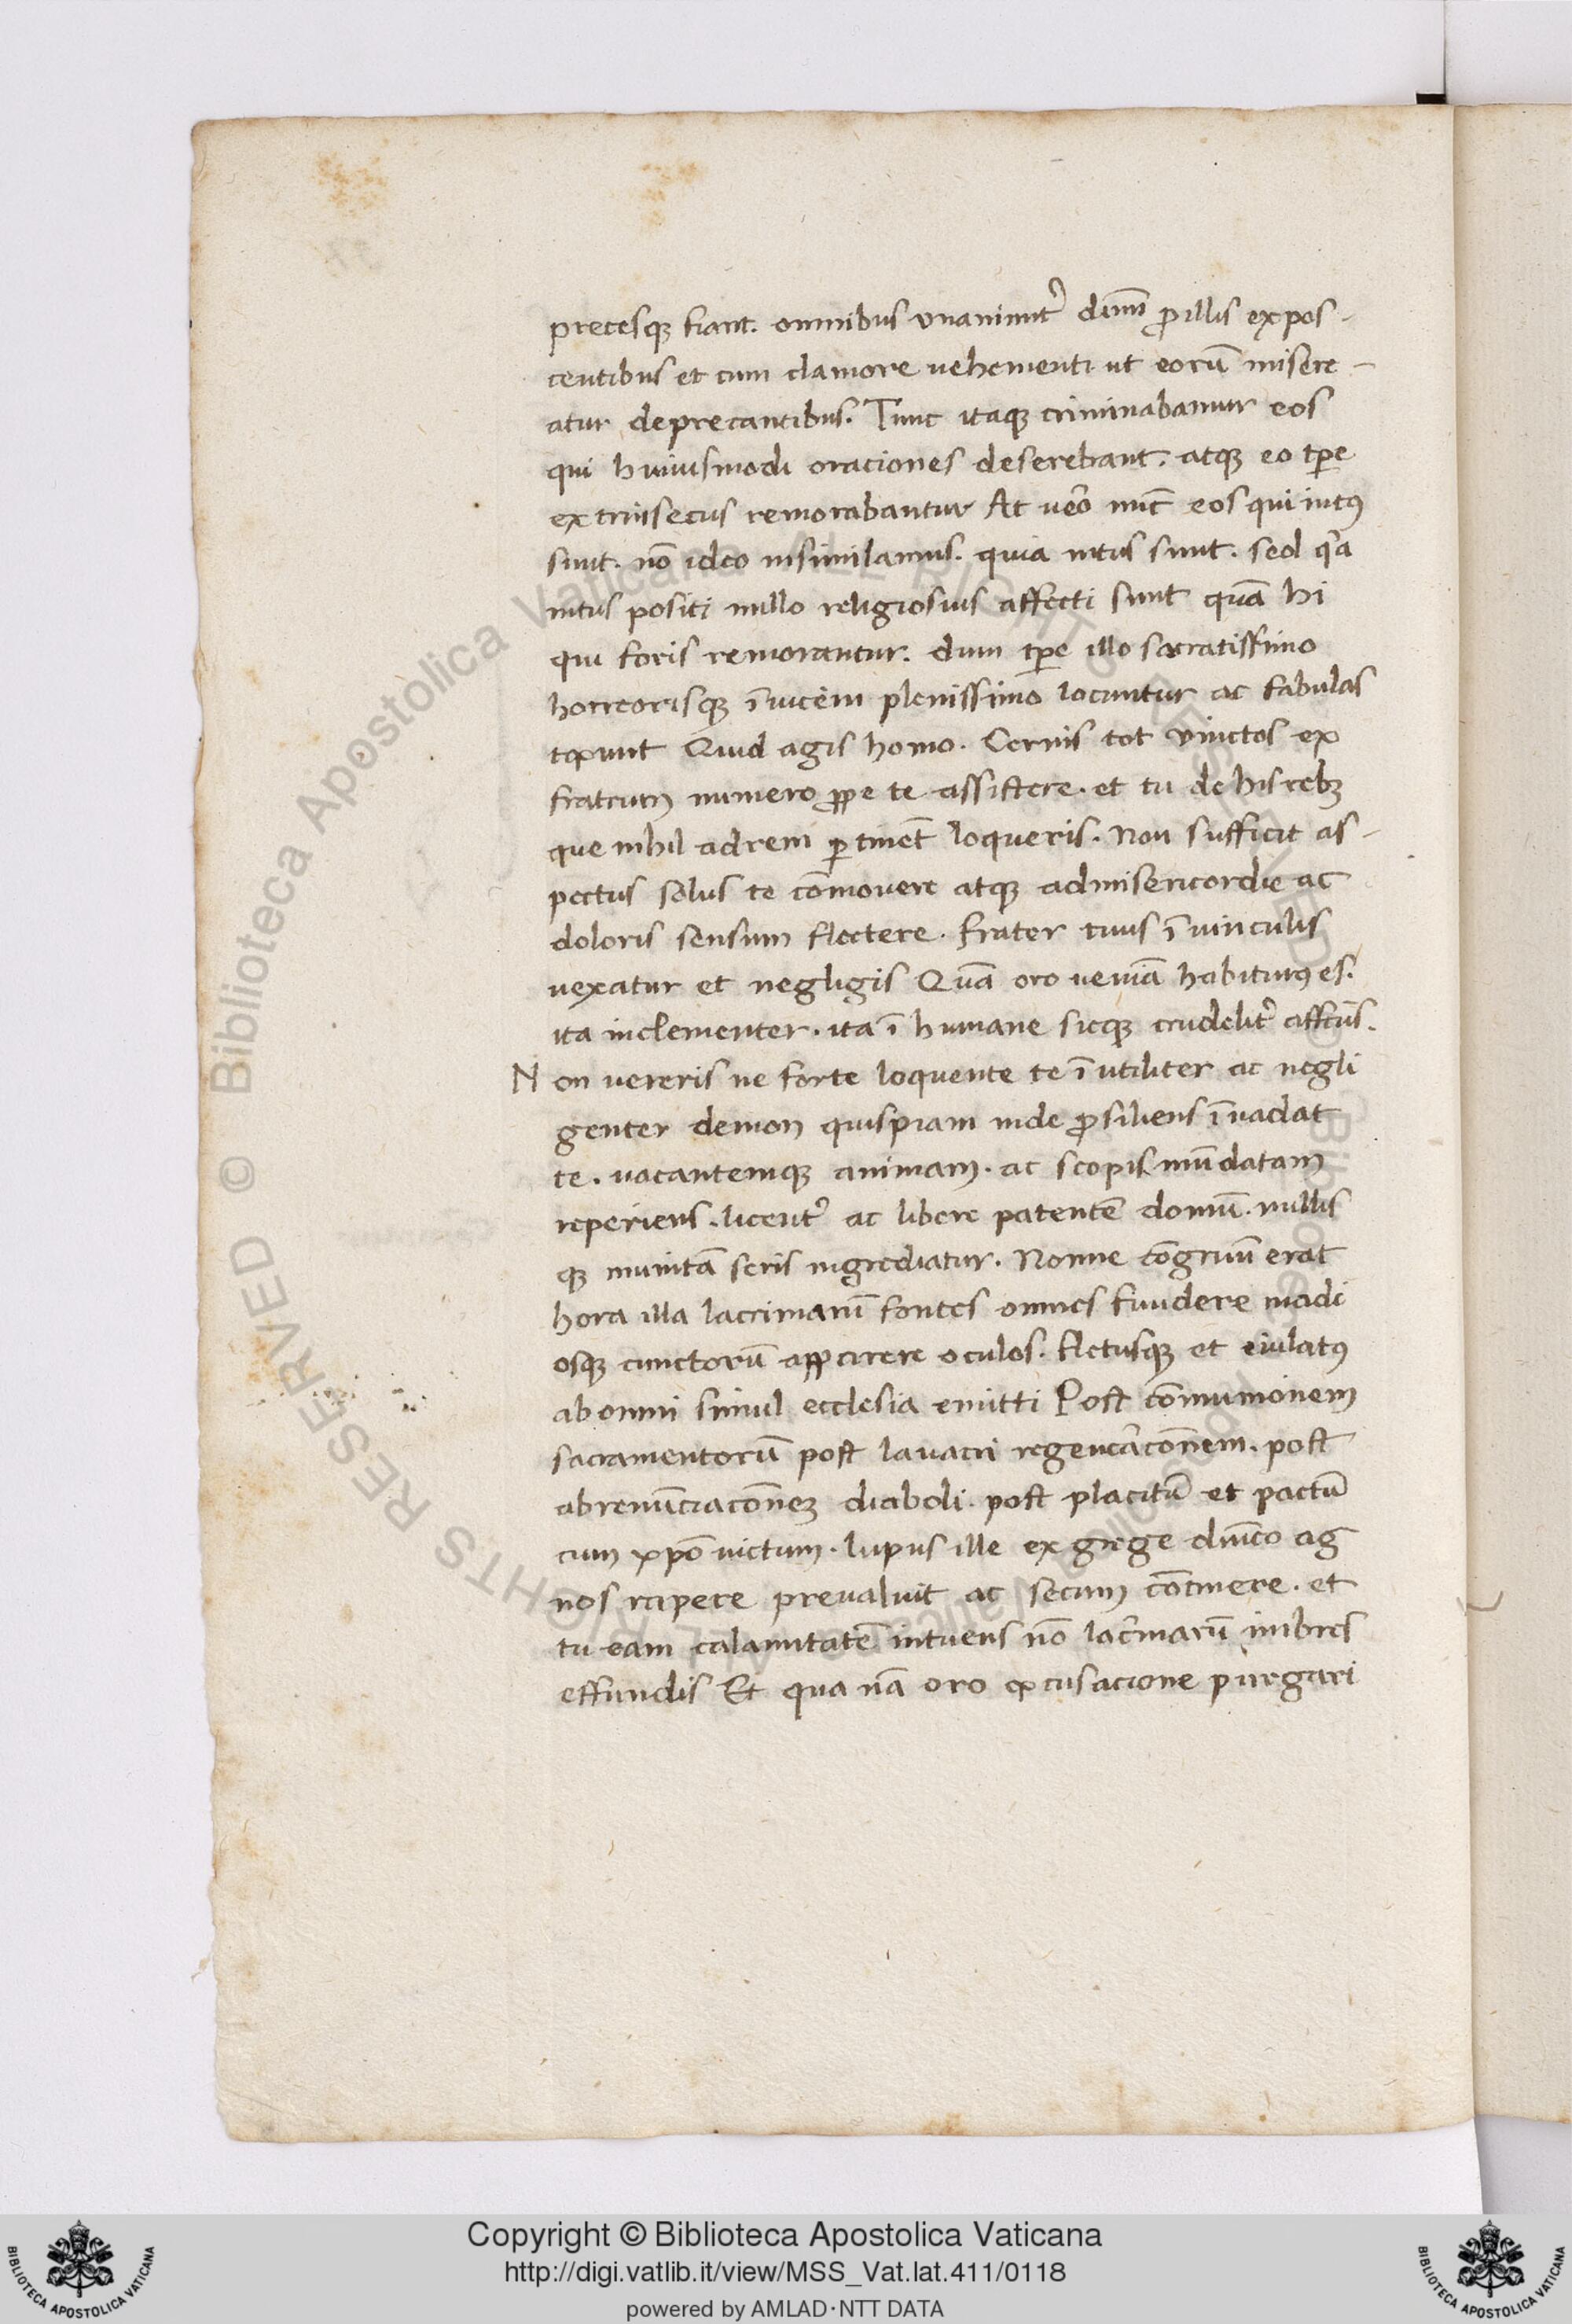 precesqꝫ fiant. omnibus unanimit̉ dium̄ ꝓ illis expos-
centibus et cum clamore uehementi ut eorū misere-
atur deprecantibus. Tunc itaqꝫ criminabamur eos
qui huiusmodi oraciones deserebant. atqꝫ eo tꝑe
extrinsecus remorabantur At uēo nūc eos qui intꝰ
sunt. nō ideo insimilamus. quia intus sunt. sed qͣa
intus positi nullo religiosius affecti sunt quā hi
qui foris remorantur. dum tꝑe illo sacratissimo
horreorisqꝫ īuicem plenissimo locuntur ac fabulas
texunt Quid agis homo. Cernis tot vinctos ex
fratrum numero ꝓpe te assistere. et tu de his rebꝫ
que nihil ad rem ꝑtinēt loqueris. Non sufficit as-
pectus solus te cōmouere atqꝫ ad misericordie ac
doloris sensum flectere. frater tuus ī uinculis
uexatur et negligis Quā oro ueniā habiturꝰ es.
ita inclementer. ita īhumane sicqꝫ crudelit̉ affcūs.
Non uereris ne forte loquente te īutiliter ac negli
genter demon quispiam inde ꝓsiliens īuadat
te. vacantemqꝫ animam. ac scopis mūdatam
reperiens. licent̉ ac libere patentē domū. nullis
qꝫ munitā seris ingrediatur. Nonne cōgruū erat
hora illa lacrimarū fontes omnes fundere madi
osqꝫ cunctorū apparere oculos. fletusqꝫ et eiulatꝰ
ab omni simul ecclesia emitti Post cōmunionem
sacramentorū post lauacri regenerac̄onem. post
abrenūciac̄oneꝫ diaboli. post placitū et pactū
cum xp̄o uictum. lupus ille ex grege diuīco ag
nos rapere preualuit ac secum cōtinere. et
tu eam calamitatē intuens nō lacrimarū imbres
effundis Et qua nā oro excusacione purgari
Copyright © Biblioteca Apostolica Vaticana
http://digi.vatlib.it/view/MSS_Vat.lat.411/0118
powered by AMLAD·NTT DATA